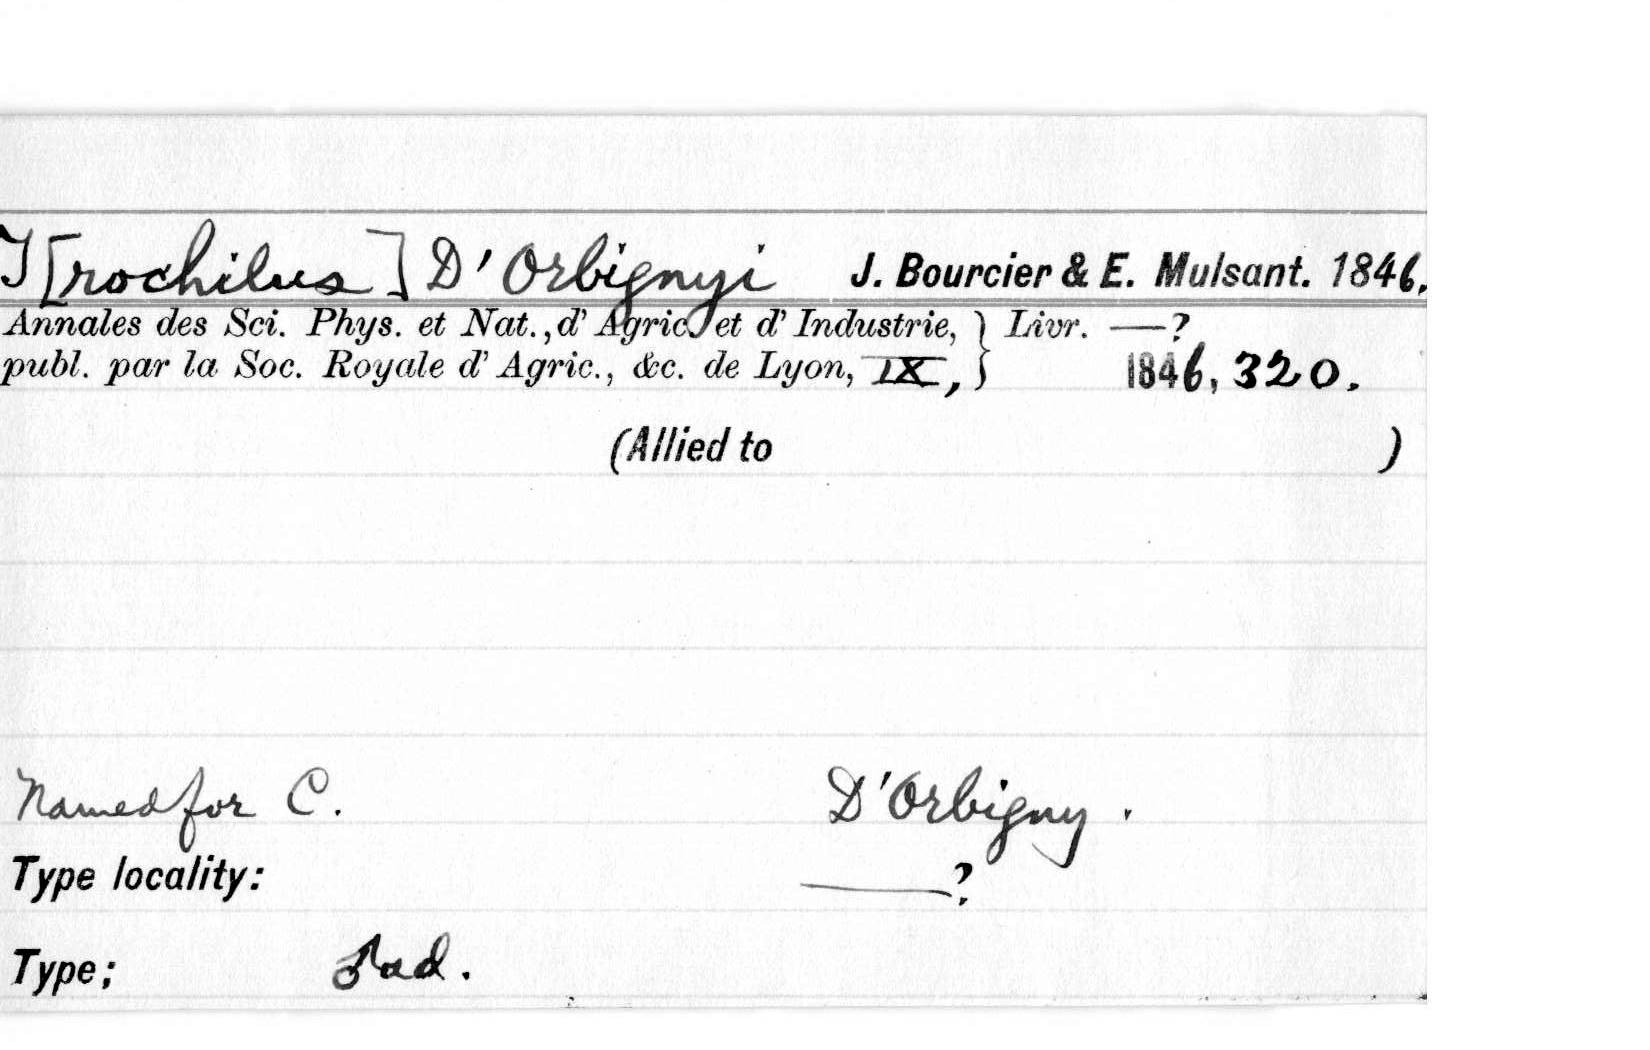 T[rochilus] D'Orbignyi J. Bourcier & E. Mulsant. 1846.
Annales des Sci. Phys. et Nat., d' Agric. et d' Industrie, } Livr. —?
publ. par la Soc. Royale d' Agric., &c. de Lyon, IX, } 1846, 320.
(Allied to )
Named for C. D'Orbigny.
Type locality: —?
Type; ♂ ad.